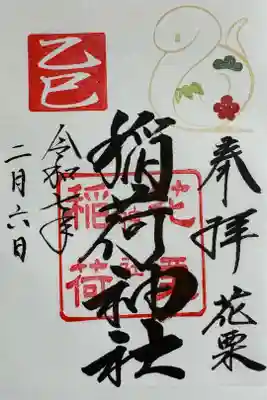 奉拝
花栗
稲荷神社
令和七年
二月六日
乙巳
稲荷